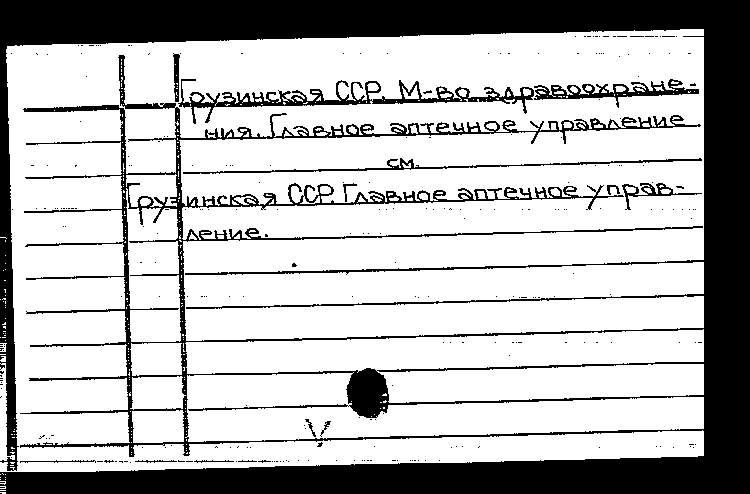 Грузинская ССР. М-во здравоохране-
ния. Главное аптечное управление
см.
Грузинская ССР. Главное аптечное управ-
ление.
V